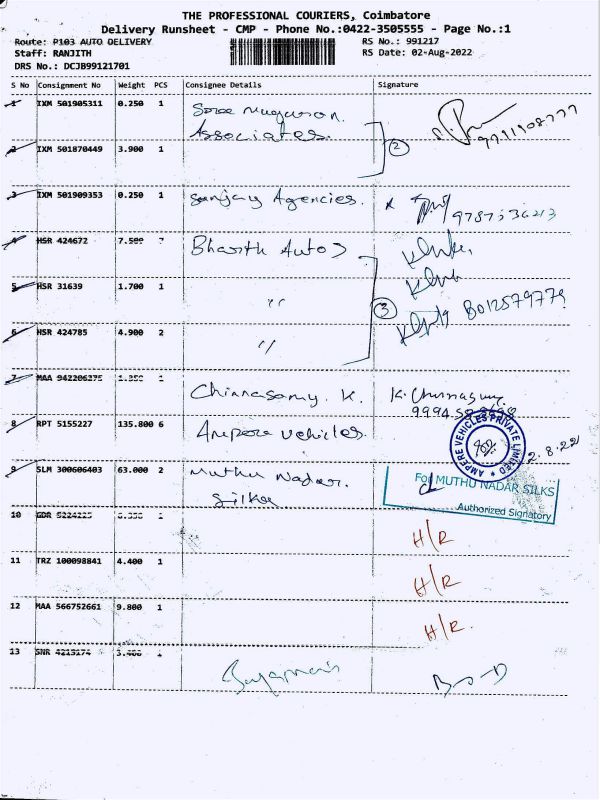 THE PROFESSIONAL COURIERS, Coimbatore
Delivery Runsheet - CMP - Phone No.:0422-3505555 - Page No.:1
Route: P103 AUTO DELIVERY RS No.: 991217
Staff: RANJITH RS Date: 02-Aug-2022
DRS No.: DCJB99121701
S No Consignment No Weight PCS Consignee Details Signature
1 IXM 501905311 0.250 1
Associates.
2 IXM 501870449 3.900 1 2
3 IXM 501909353 0.250 1 Sanjay Agencies.
4 HSR 424672 7.500 Bharith Autos
5 HSR 31639 1.700 1 "
3 8012579779
6 HSR 424785 4.900 2 "
7 MAA 942206275 1
Chinnasamy. K. K. Chinnasamy
8 RPT 5155227 135.800 6 Ampere vehicles.
AMPERE VEHICLES PRIVATE LIMITED
2.8.22
9 SLM 300606403 63.000 2 Muthu Nadar.
Silks
For MUTHU NADAR SILKS
Authorized Signatory
10 GDR 5224225 1
H/R
11 TRZ 100098841 4.400 1
H/R
12 MAA 566752661 9.800 1
H/R.
13 SNR 4215174 3.400 1